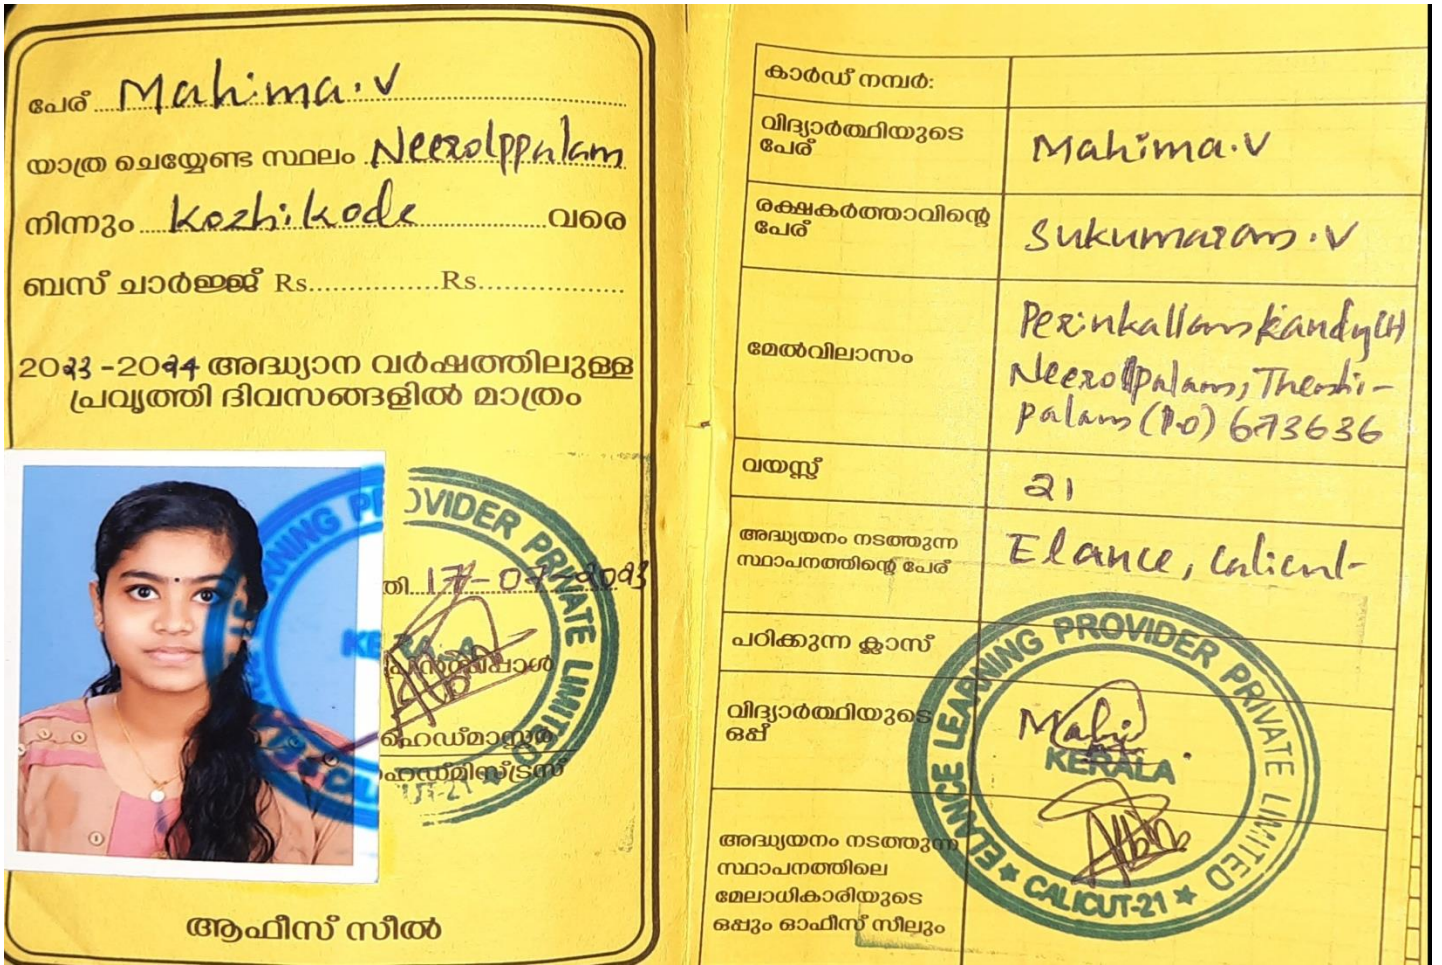 പേര് Mahima.V
യാത്ര ചെയ്യേണ്ട സ്ഥലം Neerolppalam
നിന്നും Kozhikode വരെ
ബസ് ചാർജ്ജ് Rs. Rs.
2023-2024 അദ്ധ്യാന വർഷത്തിലുള്ള
പ്രവൃത്തി ദിവസങ്ങളിൽ മാത്രം
തി 17-07-2023
പ്രിൻസിപ്പാൾ
ഹെഡ്മാസ്റ്റർ
ഹെഡ്മിസ്ട്രസ്
OVIDER PRIVATE LIMITED
CUT-21
ആഫീസ് സീൽ
കാർഡ് നമ്പർ:
വിദ്യാർത്ഥിയുടെ
പേര്
Mahima.V
രക്ഷകർത്താവിന്റെ
പേര്
Sukumaran.V
മേൽവിലാസം
Perinkallan Kandy (H)
Neerolppalam, Thenhi-
palam (P.O) 673636
വയസ്സ്
21
അദ്ധ്യയനം നടത്തുന്ന
സ്ഥാപനത്തിന്റെ പേര്
Elance, Calicut
പഠിക്കുന്ന ക്ലാസ്
വിദ്യാർത്ഥിയുടെ
ഒപ്പ്
Mahi
അദ്ധ്യയനം നടത്തുന്ന
സ്ഥാപനത്തിലെ
മേലധികാരിയുടെ
ഒപ്പും ഓഫീസ് സീലും
ELANCE LEARNING PROVIDER PRIVATE LIMITED
KERALA
CALICUT-21